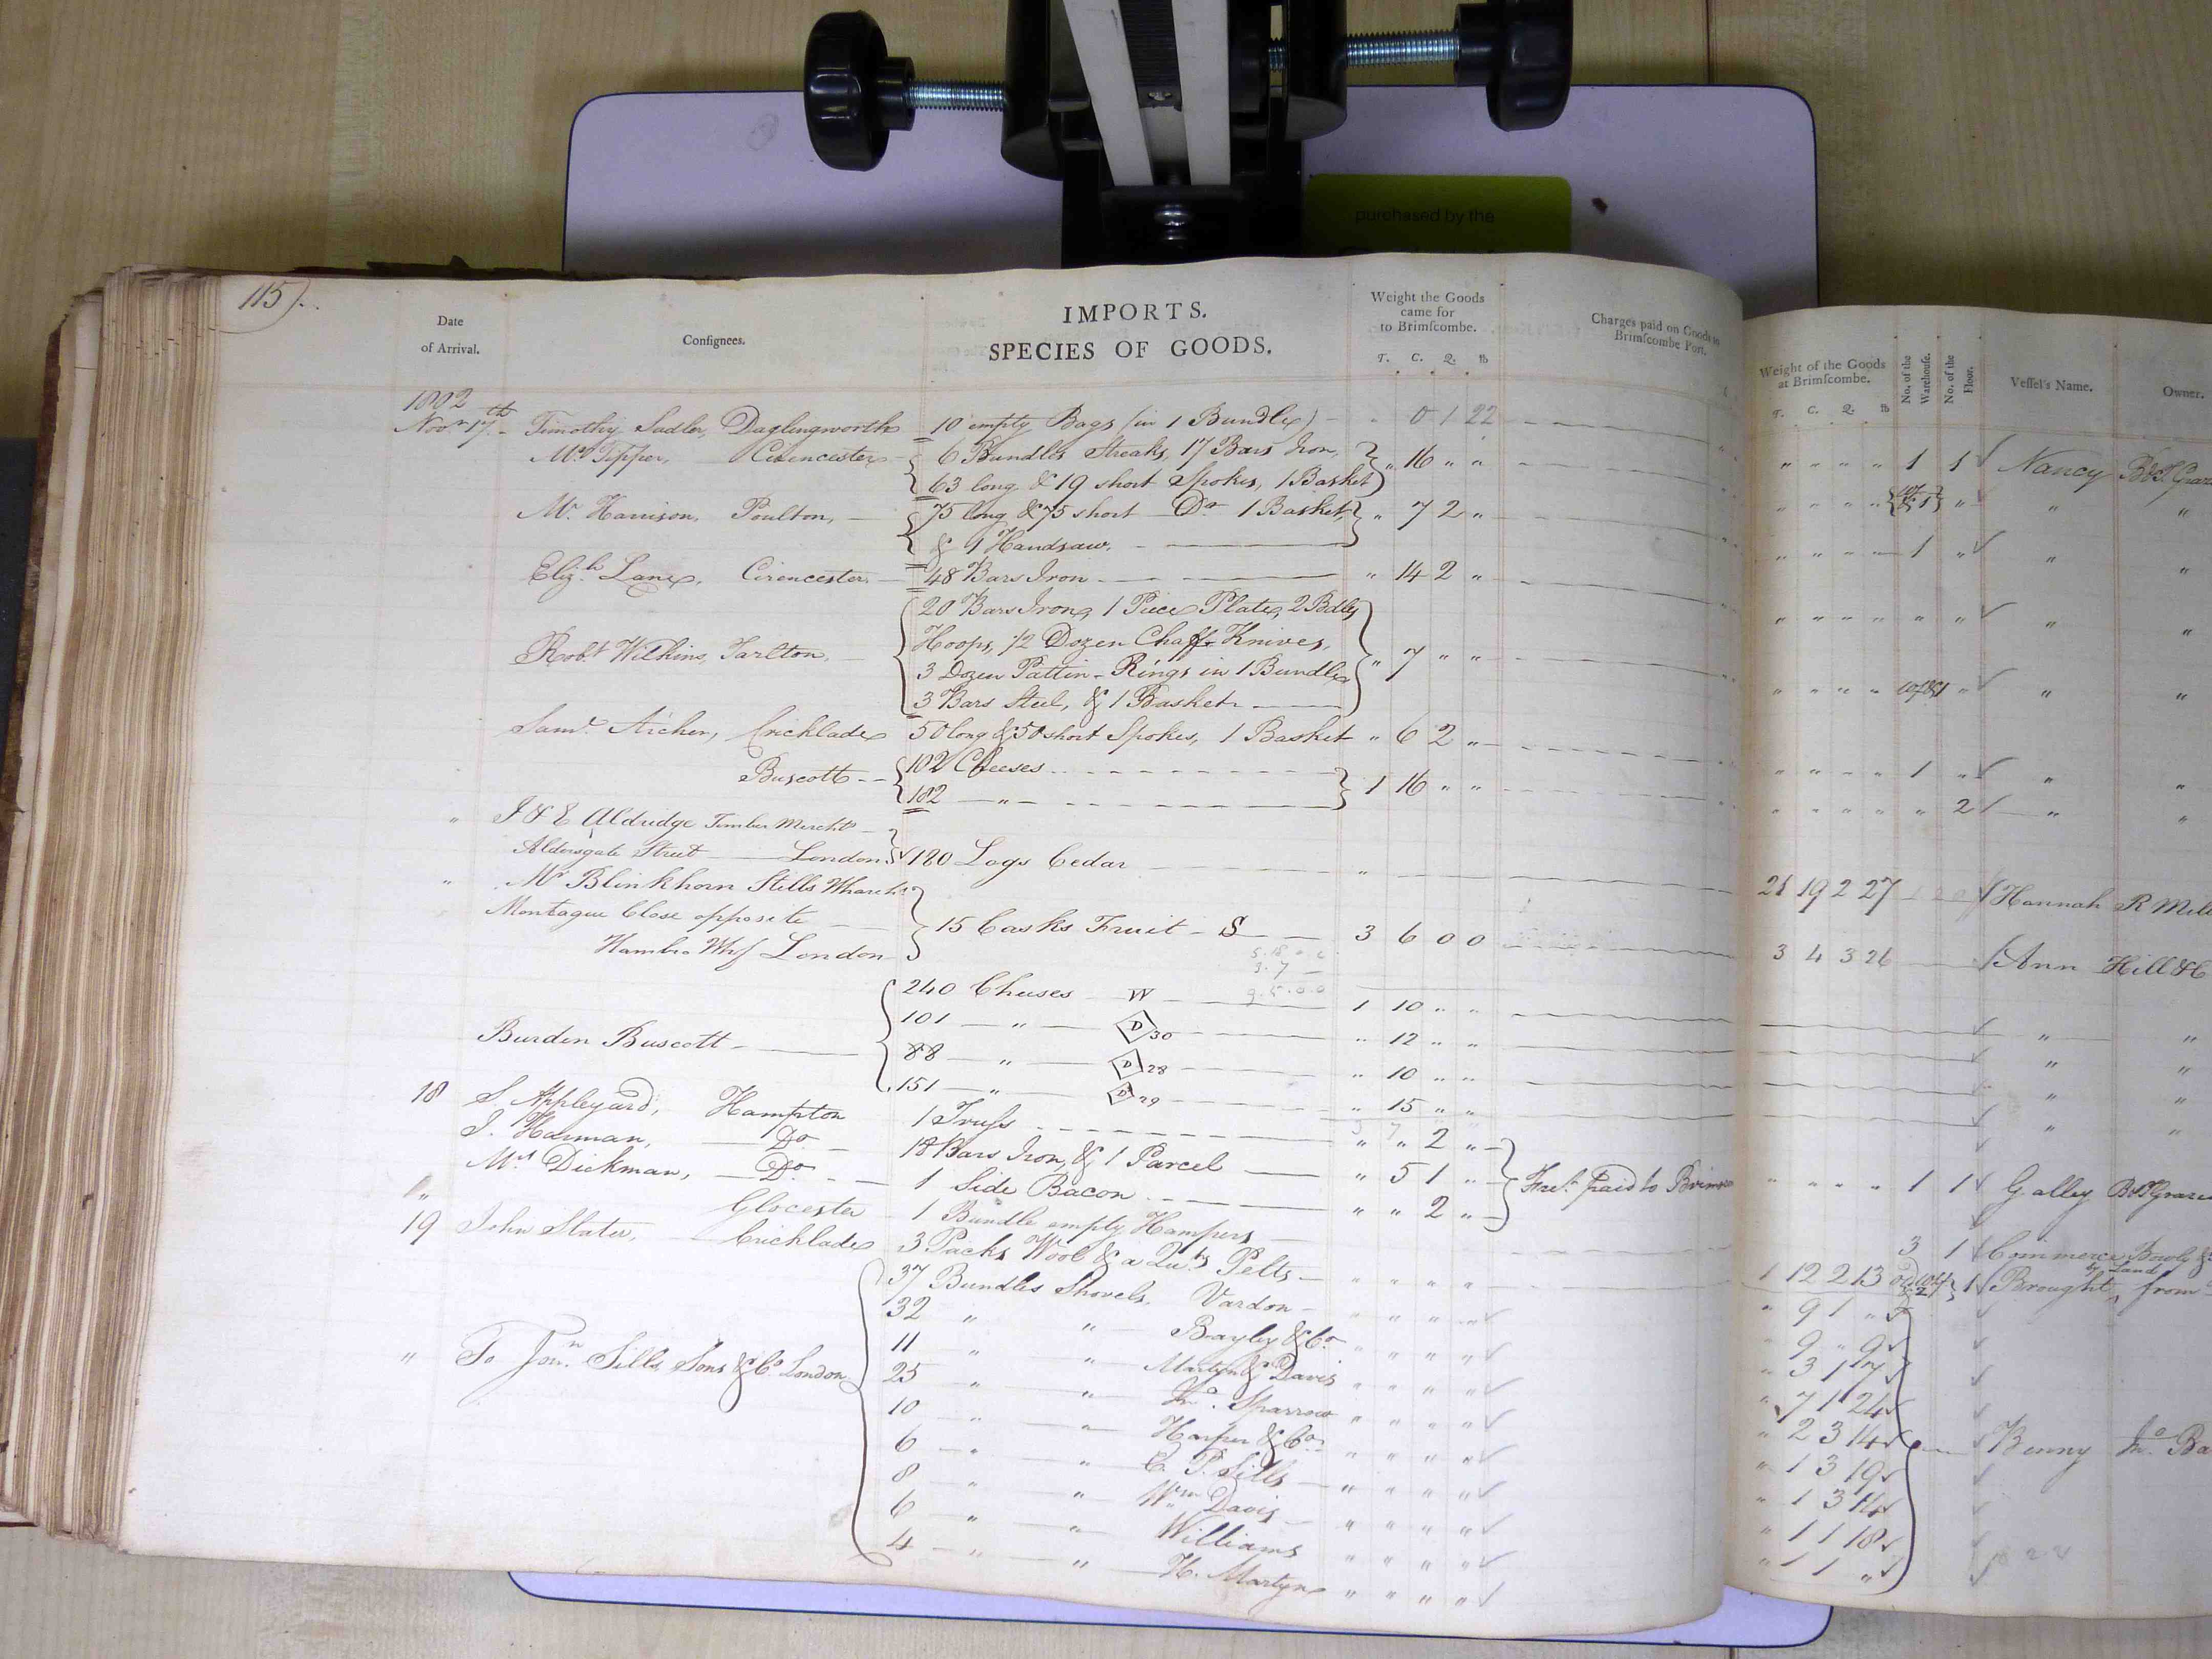 purchased by the
115
IMPORTS.
SPECIES OF GOODS.
Date of Arrival.
Consignees.
Weight the Goods came for to Brimscombe.
T. C. Q. lb
Charges paid on Goods to Brimscombe Port.
Weight of the Goods at Brimscombe.
T. C. Q. lb
No. of the Warehouse.
No. of the Floor.
Vessel's Name.
Owner.
1802
Novr 17th Timothy Sadler, Daglingworth 10 empty Bags (in 1 Bundle) " 0 1 22 " " " " 1 1 Nancy
Mr Tipper, Cirencester 6 Bundles Streaks, 17 Bars Iron, " 16 " "
63 long & 19 short Spokes, 1 Basket
Mr. Harrison, Poulton, 75 long & 75 short Do 1 Basket, " 7 2 " " " " " 1 "
& 1 Handsaw.
Elizh Lane, Cirencester 48 Bars Iron " 14 2 "
20 Bars Iron, 1 Piece Plate, 2 Bdls
Robt Wilkins, Tarlton, Hoops, 1/2 Dozen Chaff Knives, " 7 " "
3 Dozen Pattin-Rings in 1 Bundle
3 Bars Steel, & 1 Basket
Saml Archer, Cricklade 50 long & 50 short Spokes, 1 Basket " 6 2 " " " " " 1 "
Buscott 102 Cheeses 1 16 " " " " " " " 2
182 "
" J & E Aldridge Timber Mercht
Aldersgate Street London 180 Logs Cedar 21 19 2 27 Hannah R Mill
" Mr Blinkhorn Stills Wharf
Montague Close opposite 15 Casks Fruit - S 3 6 0 0 3 4 3 26 Ann Hill & C
Hambro Whf London
240 Cheeses W 1 10 " "
101 " D 30 " 12 " "
Burden Buscott 88 " D 28 " 10 " "
151 " D 29 " 15 " "
18 S. Appleyard, Hampton 1 Truss " " 2 "
J. Harman, Do 18 Bars Iron, & 1 Parcel " 5 1 " Fret. paid to " " " " 1 1 Galley
Mrs Dickman, Do 1 Side Bacon " " 2 "
" Glocester 1 Bundle empty Hampers 3 1 Commerce
19 John Slater, Cricklade 3 Packs Wool & a Qu. Pelts " " " " 1 12 2 13 1 Brought by Land from
37 Bundles Shovels. Vardon " " " " " 9 1 "
32 " " Bayley & Co " " " " " 9 " 9
11 " " Martyn & Davis " " " " " 3 1 7
" To Jonn. Sills Sons & Co. London 25 " " Jno. Sparrow " " " " " 7 1 24
10 " " Harper & Co " " " " " 2 3 14 Benny Jno. Ba
6 " " C. P. Sills " " " " " 1 3 19
8 " " Wm Davis " " " " " 1 3 14
6 " " Williams " " " " " 1 1 18
4 " " H. Martyn " " " " " 1 1 "